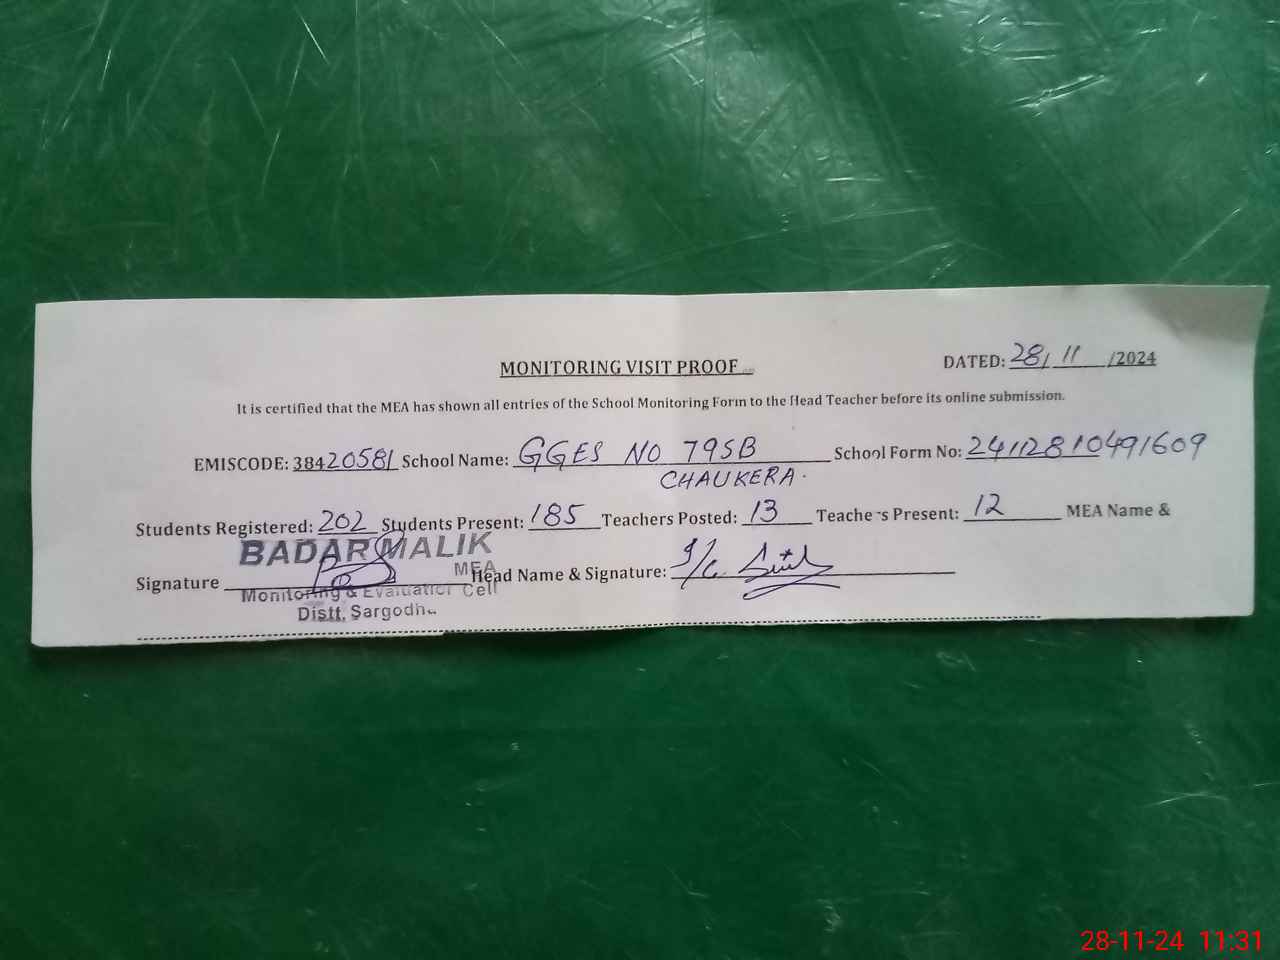 MONITORING VISIT PROOF
DATED: 28/11/2024
It is certified that the MEA has shown all entries of the School Monitoring Form to the Head Teacher before its online submission.
EMISCODE: 38420581 School Name: GGES NO 79SB School Form No: 24112810491609
CHAUKERA.
Students Registered: 202 Students Present: 185 Teachers Posted: 13 Teachers Present: 12 MEA Name &
BADAR MALIK
MEA
Signature Head Name & Signature: I/C
Monitoring & Evaluation Cell
Distt. Sargodha
28-11-24 11:31